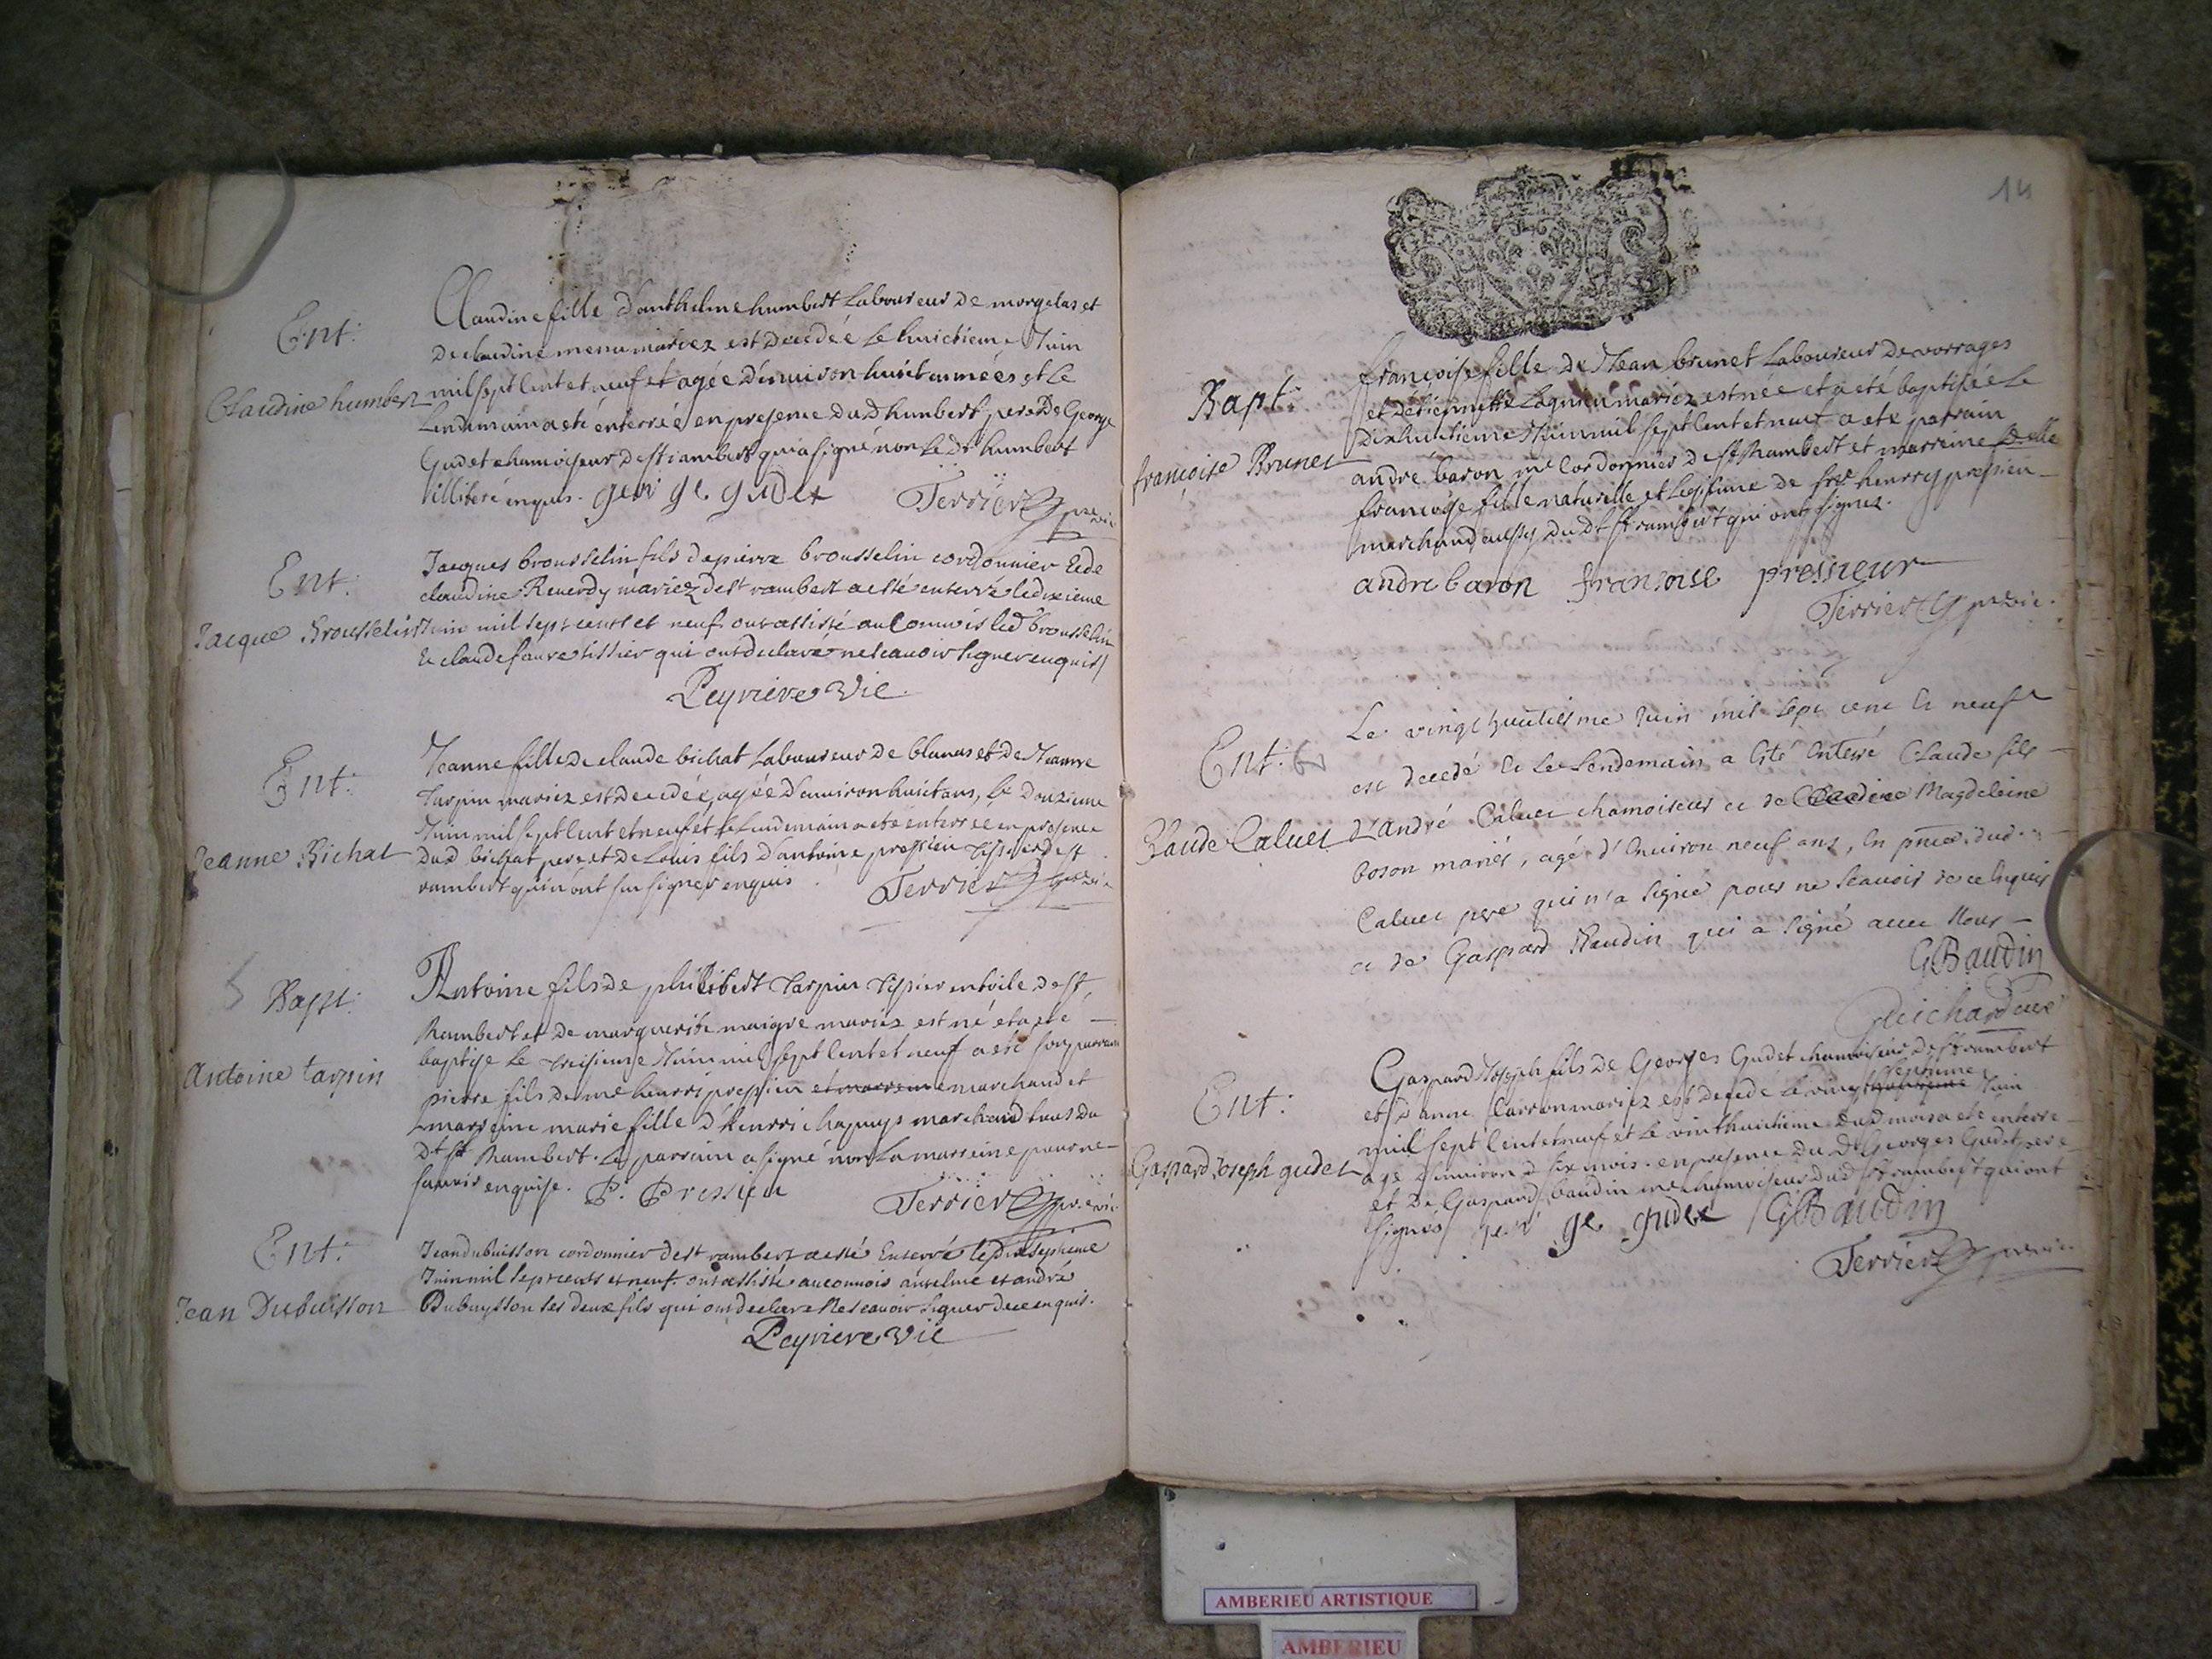 Ent:
Claudine humbert
Claudine fille d'anthelme humbert Laboureur de morgelas et
de claudine menu mariez est decedée le huictieme Juin
mil sept cent et neuf et agée d'environ huict années et le
lendemain a eté enterrée en presence dud humbert pere De George
Gudet chamoiseur de st rambert qui a signé non le dt humbert
illiteré enquis. geor ge gudet Terrier
Ent:
Jacque Brousselin
Jacques brousselin fils de pierre brousselin cordonnier & de
claudine Reverdy mariez de st rambert a esté enterré le dixieme
Juin mil sept cents et neuf ont assisté au convois led brousselin
& claude favre tissier qui ont declare ne scauoir signer enquis
Peyriere vic
Ent:
Jeanne Bichat
Jeanne fille de claude bichat Laboureur de blanas et de Jeanne
tarpin mariez est decedée, agée d'environ huict ans, le Douzieme
Juin mil sept cent et neuf et le lendemain a eté enterrée en presence
dud bichat pere et de Louis fils d'antoine pressieu tissier de st
rambert qui n'ont sçu signer enquis Terrier
Bapt:
Antoine tarpin
Antoine fils de philibert tarpin tissier en toile de st
Rambert et de marguerite maigre mariez est né et a eté
baptisé le treisieme Juin mil sept cent et neuf a esté son parrain
pierre fils de me henri pressieu et marreine marchand et
marreine marie fille d'henri chapuys marchand tous du
dt st Rambert. Le parrain a signé non la marreine pour ne
sçavoir enquise. P. Pressieu Terrier
Ent:
Jean Dubuisson
Jean dubuisson cordonnier de st rambert a esté Enterré le dixseptieme
Juin mil sept cents et neuf. ont assisté au convois anselme et andré
Dubuysson ses deux fils qui ont declare ne scauoir signer de ce enquis.
Peyriere vic
14
Bapt:
françoise Brunet
françoise fille de Jean brunet Laboureur de vorrages
et d'étiennette Lagnieu mariez est née et a été baptisée le
Dixhuitieme Juin mil sept cent et neuf a ete parrain
andré baron me Cordonnier de st Rambert et marreine Delle
françoise fille naturelle et legitime de henry pressieu
marchand aussy dudt st rambert qui ont signez.
andre baron fransoise pressieur
Terrier
Ent:
Claude Caluet
Le vingt huitiesme Juin mil sept cent & neuf
est decedé & le Lendemain a été Enterré Claude fils
d'André Caluet chamoiseur et de Magdeleine
boson mariés, agé d'Environ neuf ans, En pnce dud.
Caluet pere qui n'a signé pour ne Scauoir de ce Enquis
et de Gaspard Baudin qui a signé avec Nous
GBaudin
Guichard
Ent:
Gaspard Joseph gudet
Gaspard Joseph fils de Georges Gudet chamoiseur de st rambert
et d'anne Carron mariez est decede le vingt septieme Juin
mil sept cent et neuf et le vinthuictieme Dud mois a eté enterré
agé d'environ six mois. en presence du Dt Georges Gudet pere
et De Gaspard baudin me chamoiseur dud st rambert qui ont
signés geor ge gudet GBaudin
Terrier
AMBERIEU ARTISTIQUE
AMBERIEU